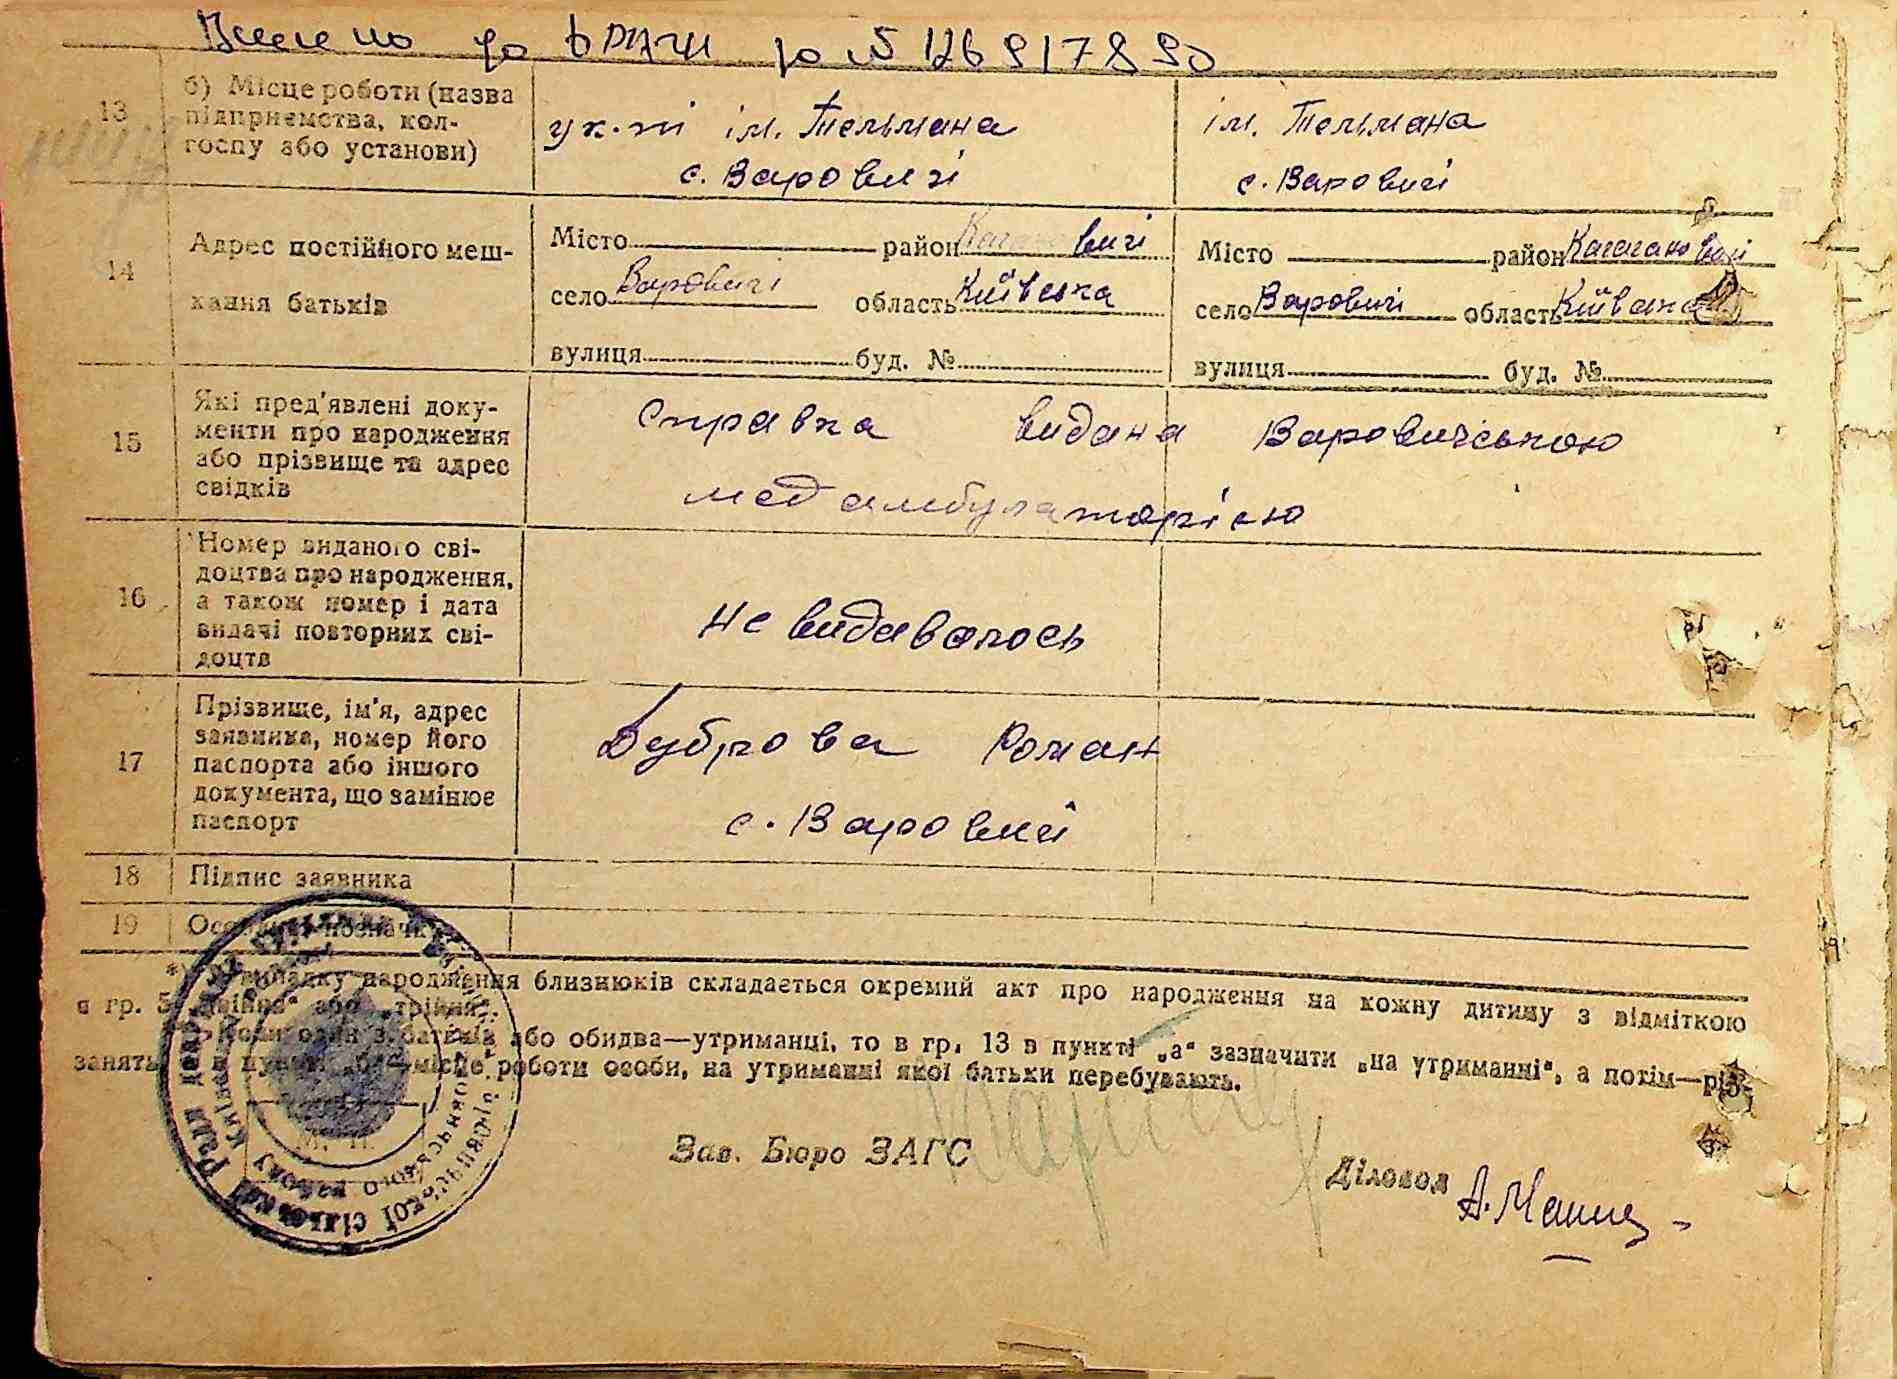 Внесено до ДРАЦС за № 126917890
13
б) Місце роботи (назва
підприємства, кол-
госпу або установи)
ук-ті ім. Тельмана
с. Варовичі
ім. Тельмана
с. Варовичі
14
Адрес постійного меш-
кання батьків
Місто район Кагановичі
село Варовичі область Київська
вулиця буд. №
Місто район Кагановичі
село Варовичі область Київська
вулиця буд. №
15
Які пред'явлені доку-
менти про народження
або прізвище та адрес
свідків
Справка видана Варовичською
медамбулаторією
16
Номер виданого сві-
доцтва про народження,
а також номер і дата
видачі повторних сві-
доцтв
не видавалось
17
Прізвище, ім'я, адрес
заявника, номер його
паспорта або іншого
документа, що замінює
паспорт
Дуброва Роман
с. Варовичі
18 Підпис заявника
19
*) У випадку народження близнюків складається окремий акт про народження на кожну дитину з відміткою
в гр. 5 „двійня" або „трійня".
Коли один з батьків або обидва—утриманці, то в гр. 13 в пункті „а" зазначити „на утриманні", а потім—рід
занять, а в пункті „б"—місце роботи особи, на утриманні якої батьки перебувають.
М. П.
Зав. Бюро ЗАГС
Діловод